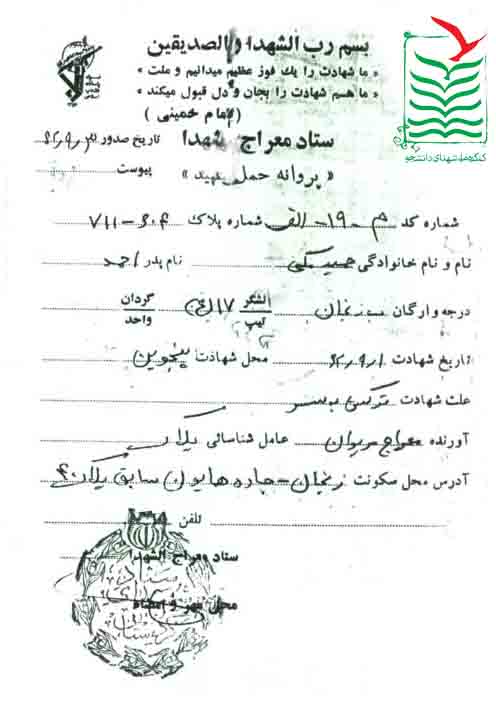 بسم رب الشهدا و الصدیقین
« ما شهادت را یك فوز عظیم میدانیم و ملت
ما هم شهادت را بجان و دل قبول میكند »
(امام خمینی)
ستاد معراج شهدا
تاریخ صدور
« پروانه حمل شهید »
پیوست
شماره کد م - ۱۹ - الف شماره پلاک ۶۰۴ - ۷۱۱
نام و نام خانوادگی نام پدر احمد
درجه و ارگان لشگر ۱۷ گردان
تیپ واحد
تاریخ شهادت محل شهادت پنجوین
علت شهادت ترکش به سر
آورنده معراج مریوان عامل شناسائی پلاک
آدرس محل سکونت زنجان - جاده همایون سابق پلاک ۴۰
تلفن
ستاد معراج الشهدا
محل مهر و امضاء
کنگره ملی شهدای دانشجو